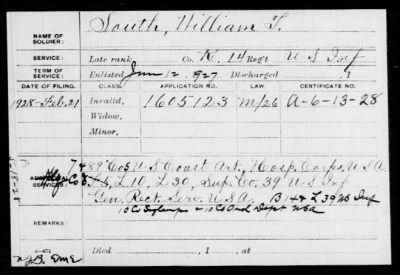 NAME OF SOLDIER: South, William T.
SERVICE: Late rank Co. K, 14 Reg't U S Inf
TERM OF SERVICE: Enlisted 12, 1927 Discharged , 1
DATE OF FILING. CLASS. APPLICATION NO. LAW. CERTIFICATE NO.
1928-Feb. 21 Invalid, 1605123 M/26 A-6-13-28
Widow,
Minor,
7 & 89 Cos U S Coast Art., Hosp. Corps, U S A
SERVICES: L 10, L 30, Sup. Co. 39 U S Inf
Gen. Rect. Serv. U.S.A. B 14 & L 39 US Inf
Ord Dept USA
REMARKS:
Died , 1 , at